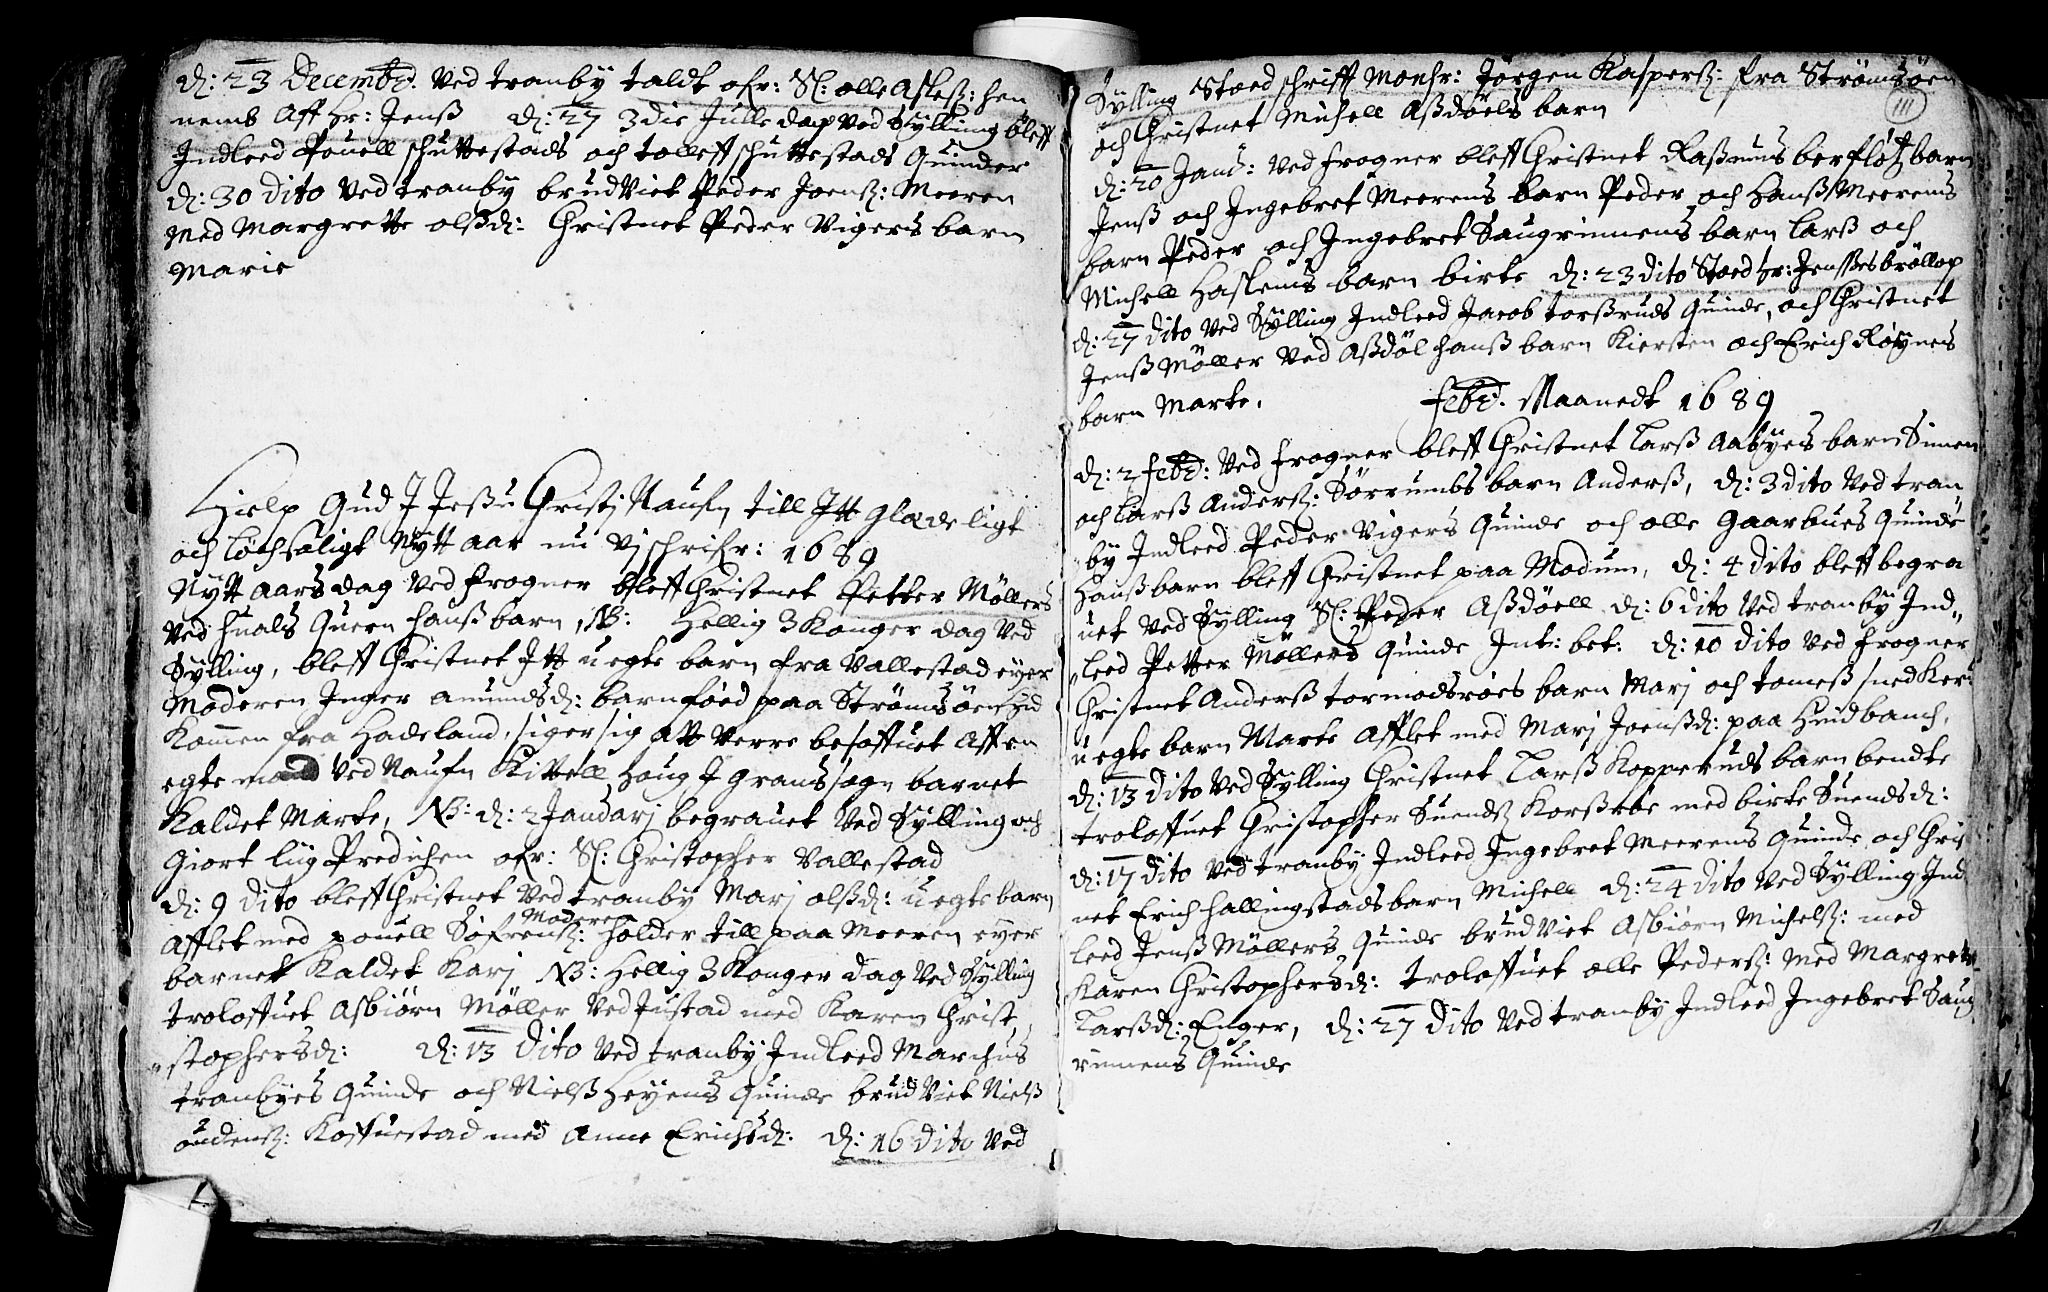 d: 23 Decembr. Ved tranby taldt ofr: Sl: olle Aslesß: hen
nemb Aff Hr: Jenß d: 27 3die Julle dag Ved Sylling bleff
Indleed Pouell schuttestads och tolleff schuttestads Quinder
d: 30 dito Ved tranby brudViet Peder Joensß: Meeren
Med Margrette olßd: Christnet Peder Vigers barn
Marie
Hielp Gud J Jeßu Christj Naufn till Itt glædeligt
och löchsaligt Nytt aar nu Vj schrifr: 1689
Nytt aars dag Ved frogner bleff Christnet Petter Möllers
Ved huals Quern hanß barn, NB: Hellig 3 Konger dag Ved
Sylling, bleff Christnet Itt uegte barn fra Vallestad eyer
Moderen Inger amundsd: barnföed paa Strömsöen hid
Kommen fra Hadeland, siger sig att Verre besoffuet Aff en
egte mand Ved Naufn Kittell Houg J grans sogn barnet
Kaldet Marte, NB: d: 2 Januarj begrauet Ved Sylling och
Giort liig Predichen ofr: Sl: Christopher Vallestad
d: 9 dito bleff Christnet Ved tranby Marj olßd: uegte barn
Afflet med pouell Söfrensß: Moderen holder till paa Meeren eyer
barnet Kaldet Karj NB: Hellig 3 Konger dag Ved Sylling
troloffuet Asbiörn Möller Ved Justad med Karen Christ,,
,,stophersd: d: 13 Dito Ved tranby Indleed Marchus
tranbyes Quinde och Nielß Heyens Quinde brudViet Nielß
oudensß: Koffuestad med Anne Erichsd: d: 16 dito Ved
111
Sylling Stoed schrifft Monsr: Jörgen Kaspersß: fra Strömsöen
och Christnet Michell Aßdöels barn
d: 20 Janu: Ved frogner bleff Christnet Raßmus berflöt barn
Jenß och Ingebret Meerens barn Peder och Hanß Meerens
barn Peder och Ingebret Saugrinnens barn Larß och
Michell Haslems barn birte d: 23 dito Stoed hr: Jensßes bröllop
d: 27 dito Ved Sylling Indleed Jacob torßruds Quinde, och Christnet
Jenß Möller Ved Aßdöl hanß barn Kiersten och Erich Röynes
barn Marte.
febr. Maanedt 1689
d: 2 febr: Ved frogner bleff Christnet Larß Aabyes barn Simen
och Larß Andersß: Sörrumbs barn Anderß, d: 3 dito Ved tran
by Indleed Peder Vigers Quinde och olle Gaarbues Quinde
Hanß barn bleff Christnet paa Modum, d: 4 dito bleff begra
uet Ved Sylling Sl: Peder Aßdöell d: 6 dito Ved tranby Ind,,
,,leed Petter Möllers Quinde Int: bet: d: 10 dito Ved frogner
Christnet Anderß tormodsröes barn Marj och tomeß snedKers
uegte barn Marte Afflet med Marj Joensßd: paa Huidbanch,
d: 13 dito Ved Sylling Christnet Larß Kopperuds barn bendte
troloffuet Christopher Suendsß Korßröe med birte Suendsd:
d: 17 dito Ved tranby Indleed Ingebret Meerens Quinde, och Chris
net Erich Hallingstads barn Michell d: 24 dito Ved Sylling Ind
leed Jenß Möllers Quinde brudViet Asbiörn Michelsß: med
Karen Christophersd: troloffuet olle Pedersß: med Margrete
Larßd: Enger, d: 27 dito Ved tranby Indleed Ingebret Saug
rinnens Quinde